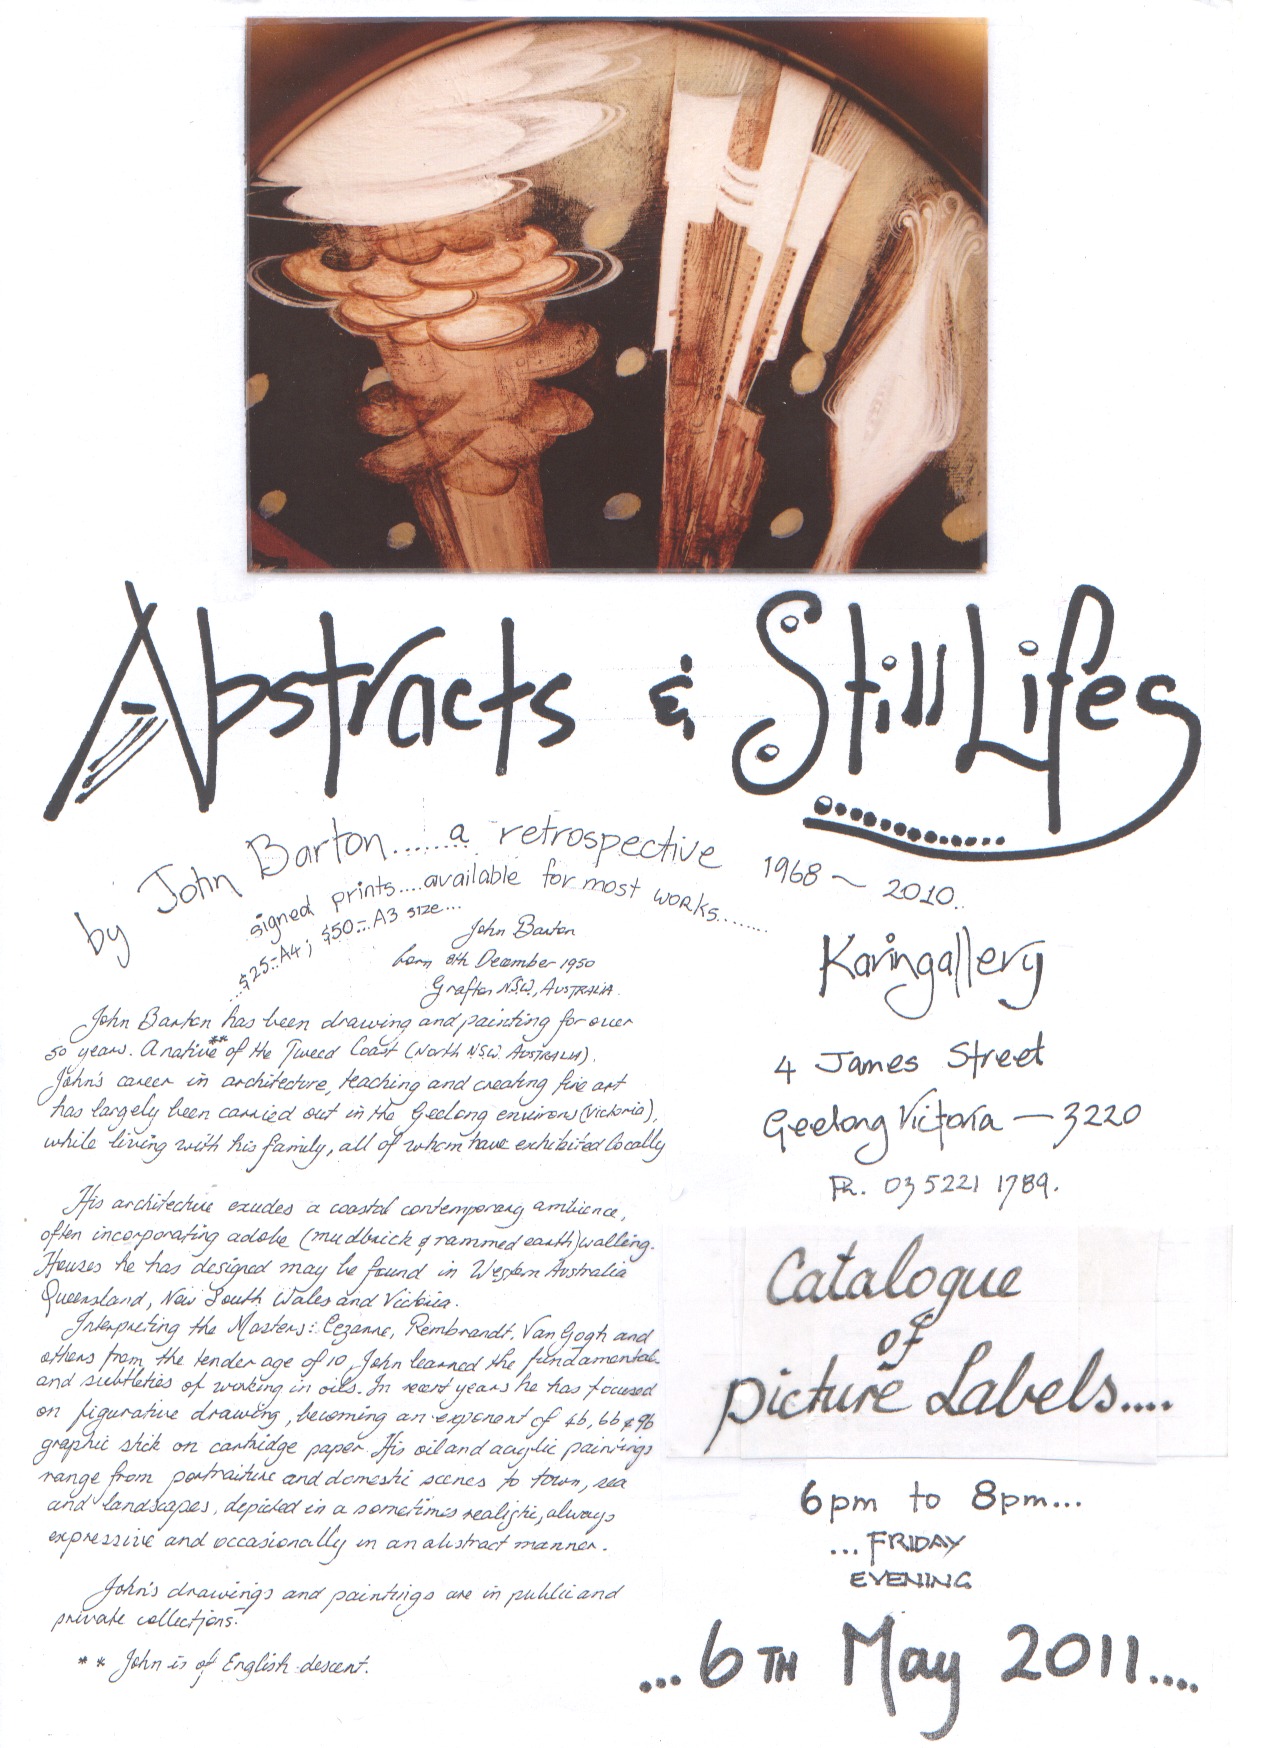 Abstracts & Still Lifes
by John Barton........a retrospective 1968 ~ 2010..
signed prints....available for most works.......
...$25-A4; $50-..A3 size....
John Barton
born 8th December 1950
Grafton N.S.W., AUSTRALIA.
John Barton has been drawing and painting for over
50 years. A native** of the Tweed Coast (North N.S.W. AUSTRALIA).
John's career in architecture, teaching and creating fine art
has largely been carried out in the Geelong environs (Victoria),
while living with his family, all of whom have exhibited locally
His architecture exudes a coastal contemporary ambience,
often incorporating adobe (mudbrick & rammed earth) walling.
Houses he has designed may be found in Western Australia
Queensland, New South Wales and Victoria.
Interpreting the Masters: Cezanne, Rembrandt, Van Gogh and
others from the tender age of 10, John learned the fundamental
and subtleties of working in oils. In recent years he has focused
on figurative drawing, becoming an exponent of 4b, 6b & 9b
graphic stick on cartridge paper. His oil and acrylic paintings
range from portraiture and domestic scenes to town, sea
and landscapes, depicted in a sometimes realistic, always
expressive and occasionally in an abstract manner.
John's drawings and paintings are in public and
private collections.
** John is of English descent.
Karingallery
4 James Street
Geelong Victoria — 3220
Ph. 03 5221 1789.
Catalogue
of
picture Labels....
6pm to 8pm...
...FRIDAY
EVENING
...6TH May 2011....